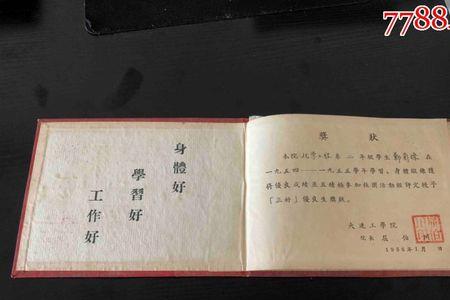 7788.
身體好
學習好
工作好
獎狀
本院化工程系二年級學生鄭在
一九五四——一九五五學年學習、身體鍛鍊獲
得優良成績並且積極參加社團活動經評定授予
「三好」優良生獎狀。
大連工學院
院長 屈伯川
1956年1月 日